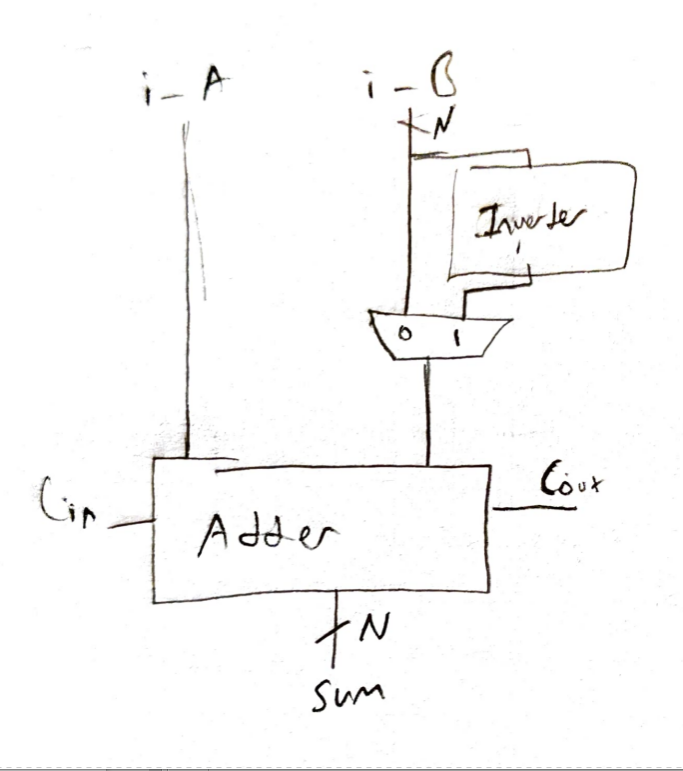 i-A
i-B
N
Inverter
0 1
Cin
Adder
Cout
N
Sum